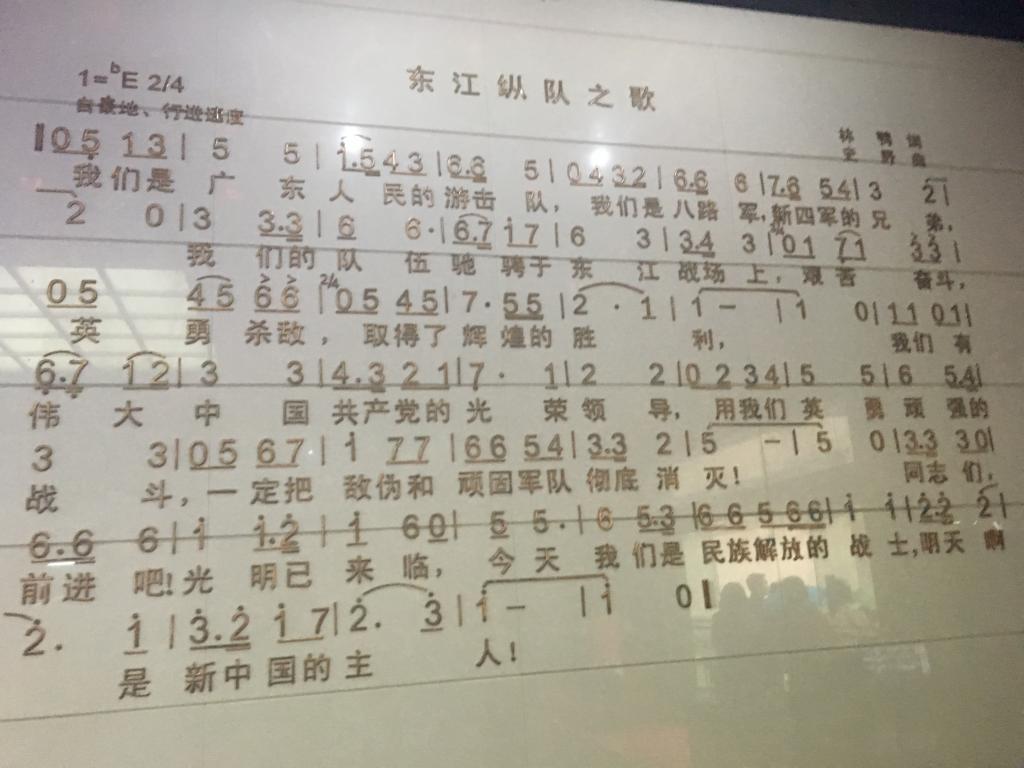 东江纵队之歌
1=ᵇE 2/4
自豪地、行进速度
林鹗词
史野曲
05 13 | 5 5 | 1.5 43 | 6.6 5 | 04 32 | 6.6 6 | 7.6 54 | 3 2 |
我们是 广 东 人 民的 游击 队， 我们是 八路 军，新四军的 兄 弟，
2 0 | 3 3.3 | 6 6· | 6.7 17 | 6 3 | 3.4 3 | 3/4 01 71 33 |
我 们的 队 伍 驰 骋于 东 江 战场 上， 艰苦 奋斗，
05 45 66 | 2/4 05 45 | 7· 55 | 2· 1 | 1 — | 1 0 | 11 01 |
英 勇 杀敌， 取得了 辉 煌的 胜 利， 我们 有
6.7 12 | 3 3 | 4.3 21 | 7· 1 | 2 2 | 02 34 | 5 5 | 6 54 |
伟 大 中 国 共产党的 光 荣 领 导， 用我们 英 勇 顽 强的
3 3 | 05 67 | 1 77 | 66 54 | 3.3 2 | 5 — | 5 0 | 33 30 |
战 斗，一定把 敌伪和 顽固军队 彻底 消 灭！ 同志 们，
6.6 6 | 1 1.2 | 1 60 | 5 5. | 6 5.3 | 66 566 | 1 1 | 22 2 |
前进 吧！光 明已 来 临， 今 天 我 们是 民族解放的 战 士，明天 啊
2. 1 | 3.2 17 | 2. 3 | 1 — | 1 0 ‖
是 新中国的主 人！